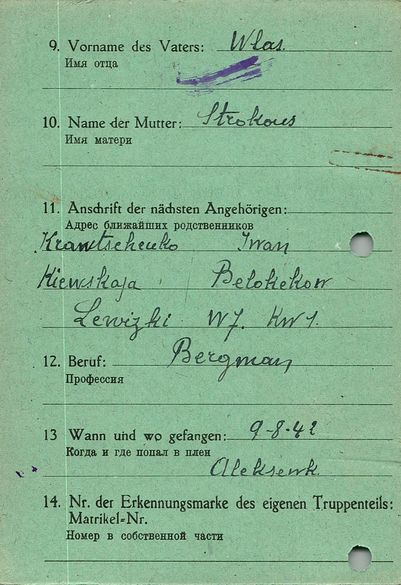 9. Vorname des Vaters: Wlas.
Имя отца
10. Name der Mutter: Strokous
Имя матери
11. Anschrift der nächsten Angehörigen:
Адрес ближайших родственников
Krawtschenko Iwan
Kiewskaja Belokekow
Lewizki W7. KW1.
12. Beruf: Bergman
Профессия
13 Wann und wo gefangen: 9-8-42
Когда и где попал в плен
Aleksenk.
14. Nr. der Erkennungsmarke des eigenen Truppenteils:
Matrikel-Nr.
Номер в собственной части